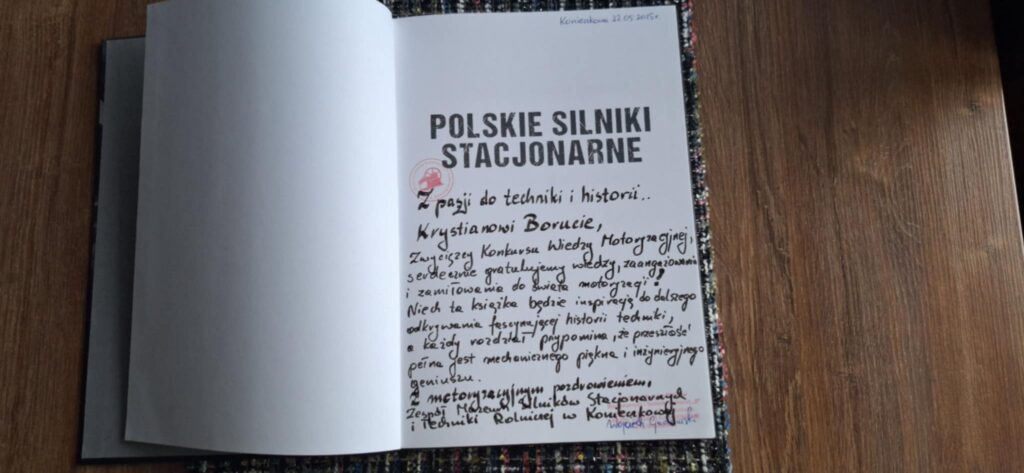 22.05.2025r.
POLSKIE SILNIKI
STACJONARNE
Z pasji do techniki i historii..
Krystianowi Borucie,
Zwycięzcy Konkursu Wiedzy Motoryzacyjnej,
serdecznie gratulujemy wiedzy, zaangażowania
i zamiłowania do świata motoryzacji!
Niech ta książka będzie inspiracją do dalszego
odkrywania fascynującej historii techniki,
a każdy rozdział przypomina, że przeszłość
pełna jest mechanicznego piękna i inżynieryjnego
geniuszu.
Z motoryzacyjnym pozdrowieniem,
Zespół Muzeum Silników Stacjonarnych
i Techniki Rolniczej w Konienkowej
Wojciech